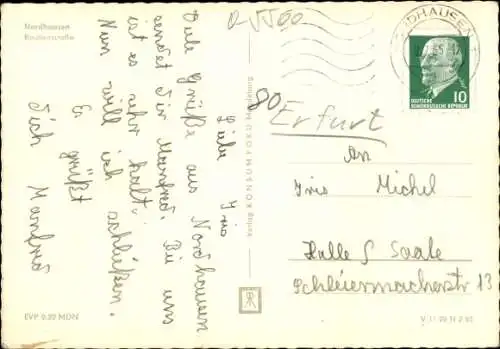 Nordhausen
Rautenstraße
Q-V500
NORDHAUSEN
10
DEUTSCHE
DEMOKRATISCHE REPUBLIK
80 Erfurt
Liebe Iris
Viele Grüße aus Nordhausen
sendet Dir Manfred. Bei uns
ist es sehr kalt.
Nun will ich schließen.
Es grüßt
Dich Manfred
Verlag KONSUM-FOKU Magdeburg
An
Iris Michel
Halle S Saale
Schleiermacherstr 13
EVP 0.20 MDN